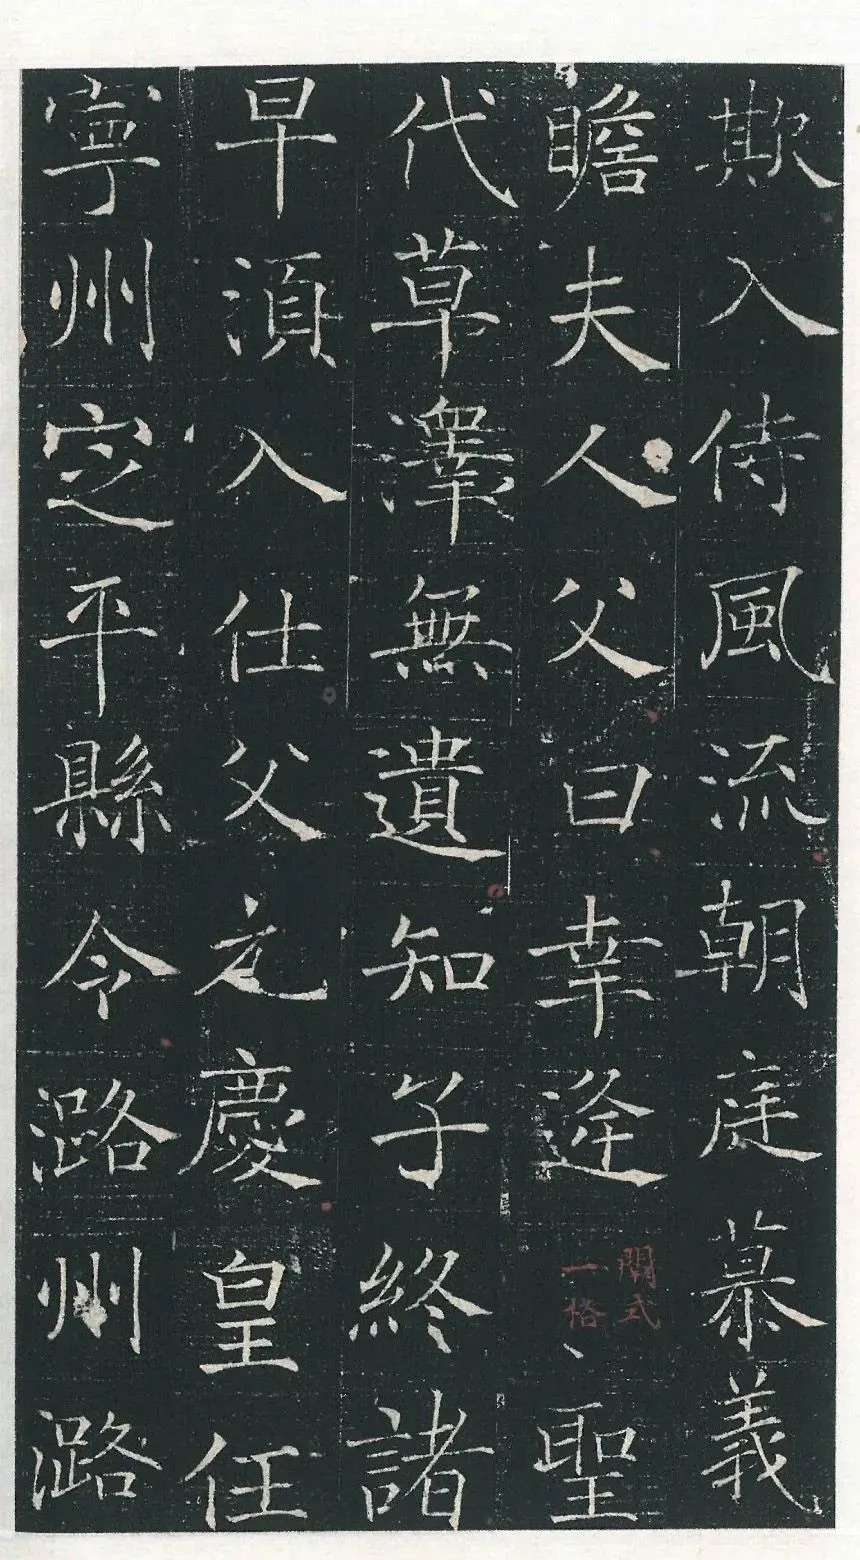 欺入侍風流朝庭慕義
瞻夫人父曰幸逢聖
代草澤無遺知子終諸
早湏入仕父之慶皇任
寧州㝎平縣令潞州潞
式
一格